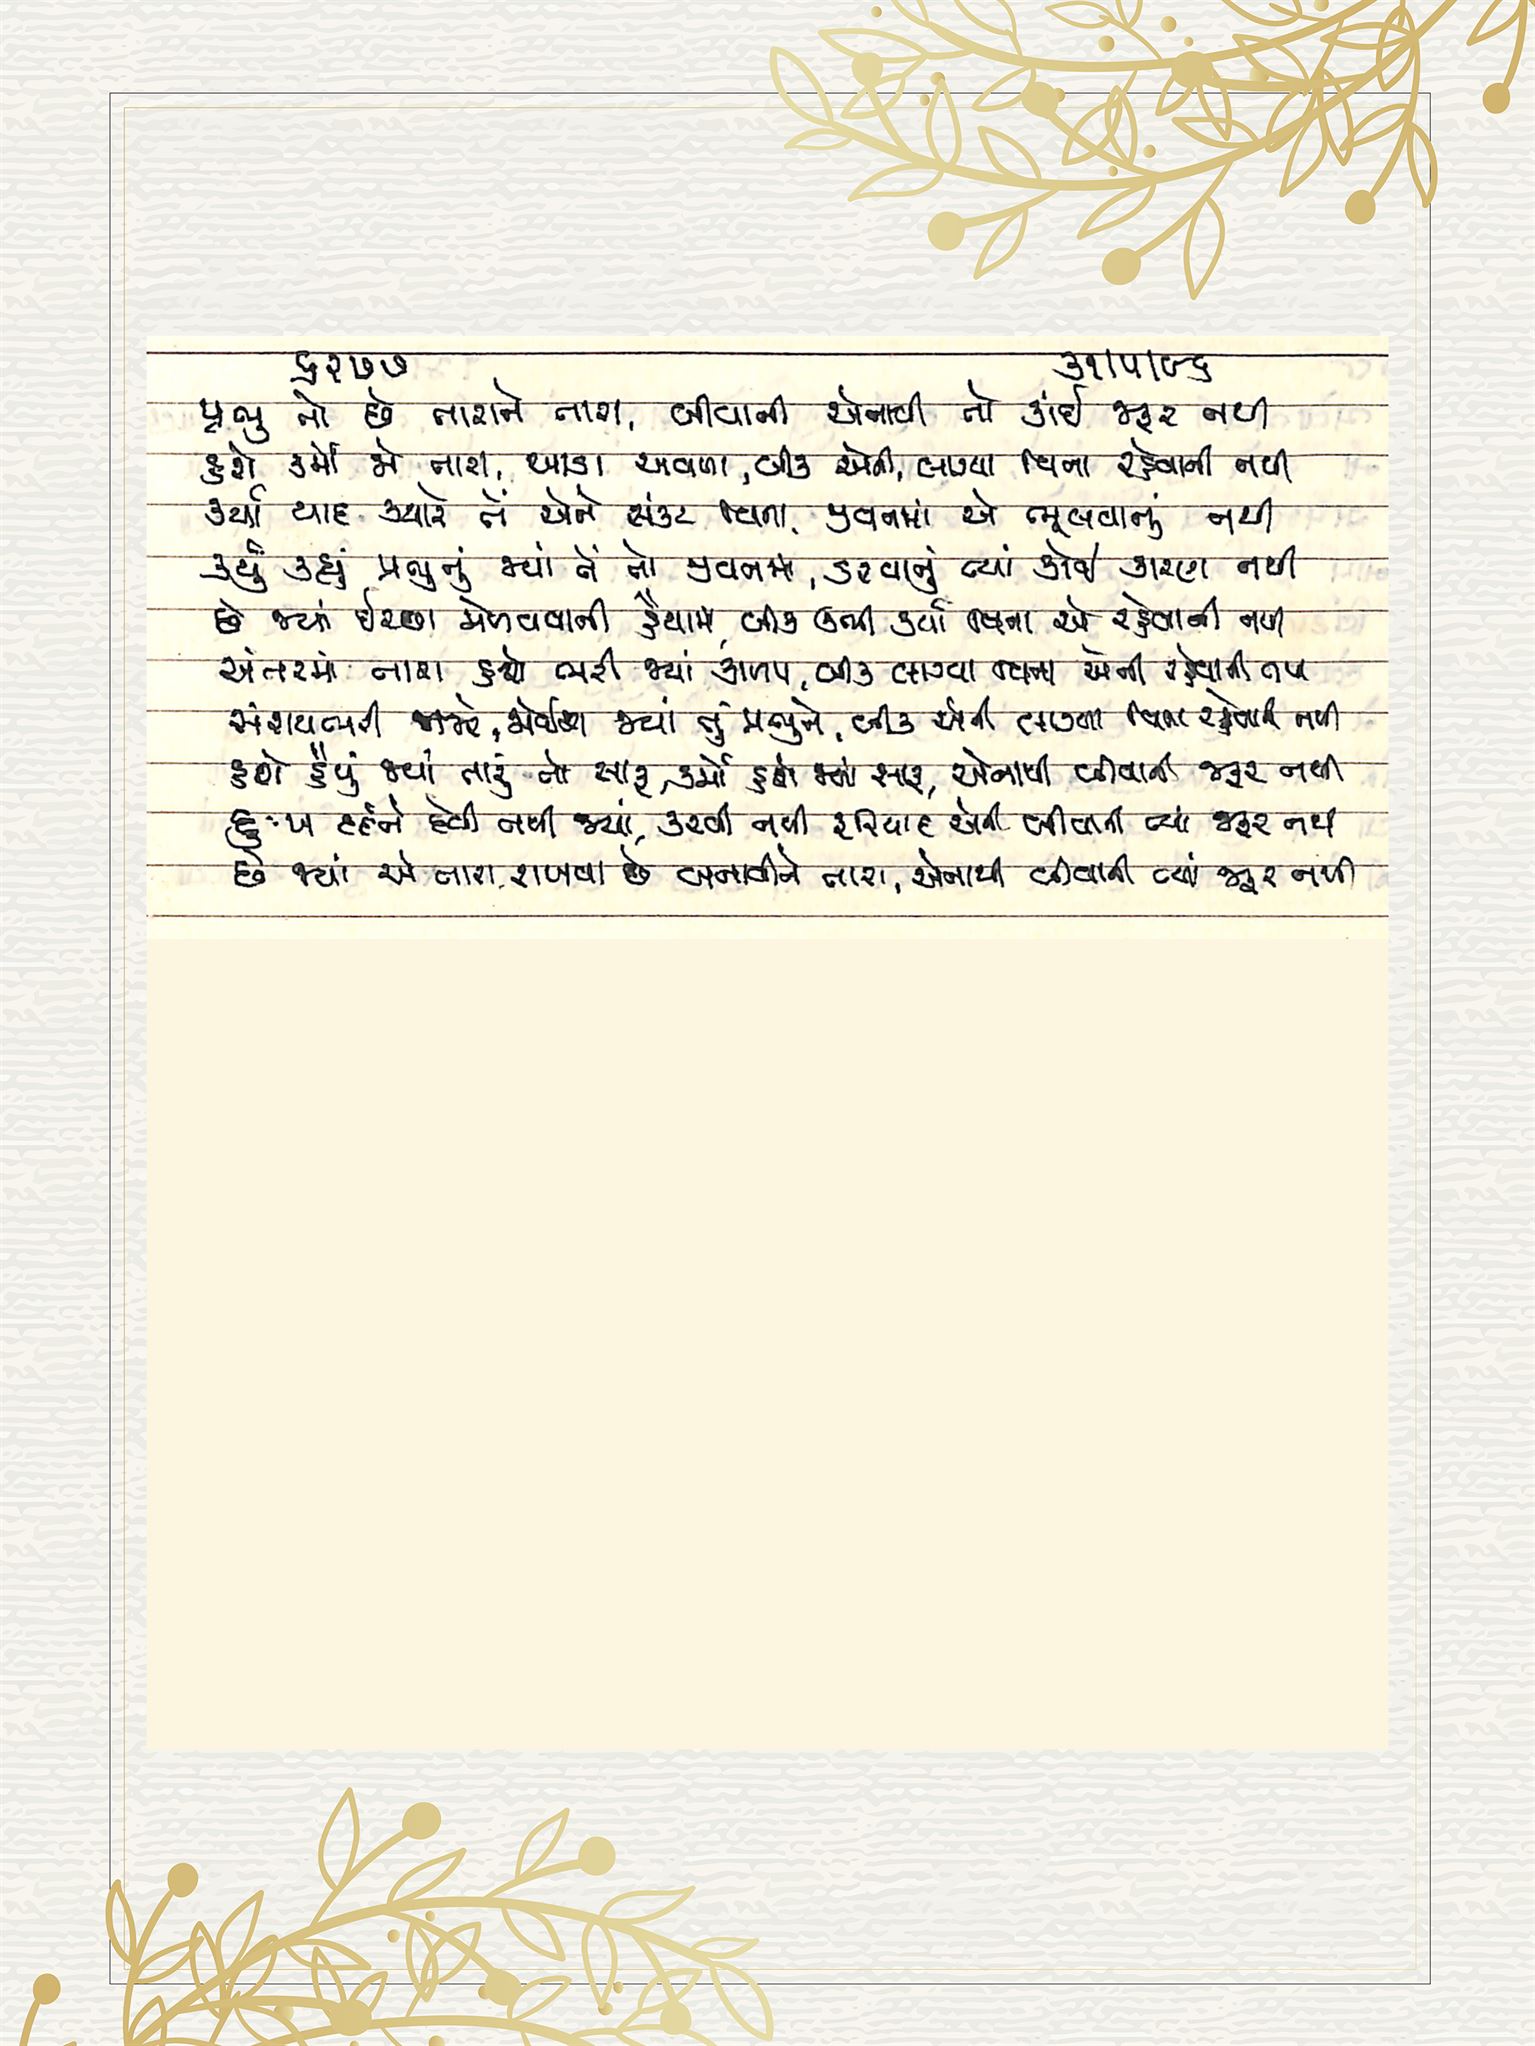 ૬૨૭૭ ૩૧।૫।૯૬
પ્રભુ તો છે તારાને તારા, બીવાની એનાથી તો કાંઈ જરૂર નથી
હશે કર્મો જો તારા, આડા અવળા, બીક એની, લાગ્યા વિના રહેવાની નથી
કર્યા યાદ ક્યારે તેં એને સંકટ વિના, જીવનમાં એ ભૂલવાનું નથી
કર્યું કહ્યું પ્રભુનું જ્યાં તેં તો જીવનમાં, ડરવાનું ત્યાં કોઈ કારણ નથી
છે જ્યાં ઈચ્છા મેળવવાની હૈયામાં, બીક ઊભી કર્યા વિના એ રહેવાની નથી
અંતરમાં તારા હશે ભરી જ્યાં કાળપ, બીક લાગવા વિના એની રહેવાની નથી
સંશયભરી નજરે, જોઈશ જ્યાં તું પ્રભુને, બીક એની લાગ્યા વિના રહેવાની નથી
હશે હૈયું જ્યાં તારું તો સારૂ, કર્મો હશે જ્યાં સારૂ, એનાથી બીવાની જરૂર નથી
દુઃખ દર્દને દેવી નથી જ્યાં, કરવી નથી ફરિયાદ એની બીવાની ત્યાં જરૂર નથી
છે જ્યાં એ તારા, રાખવા છે બનાવીને તારા, એનાથી બીવાની ત્યાં જરૂર નથી